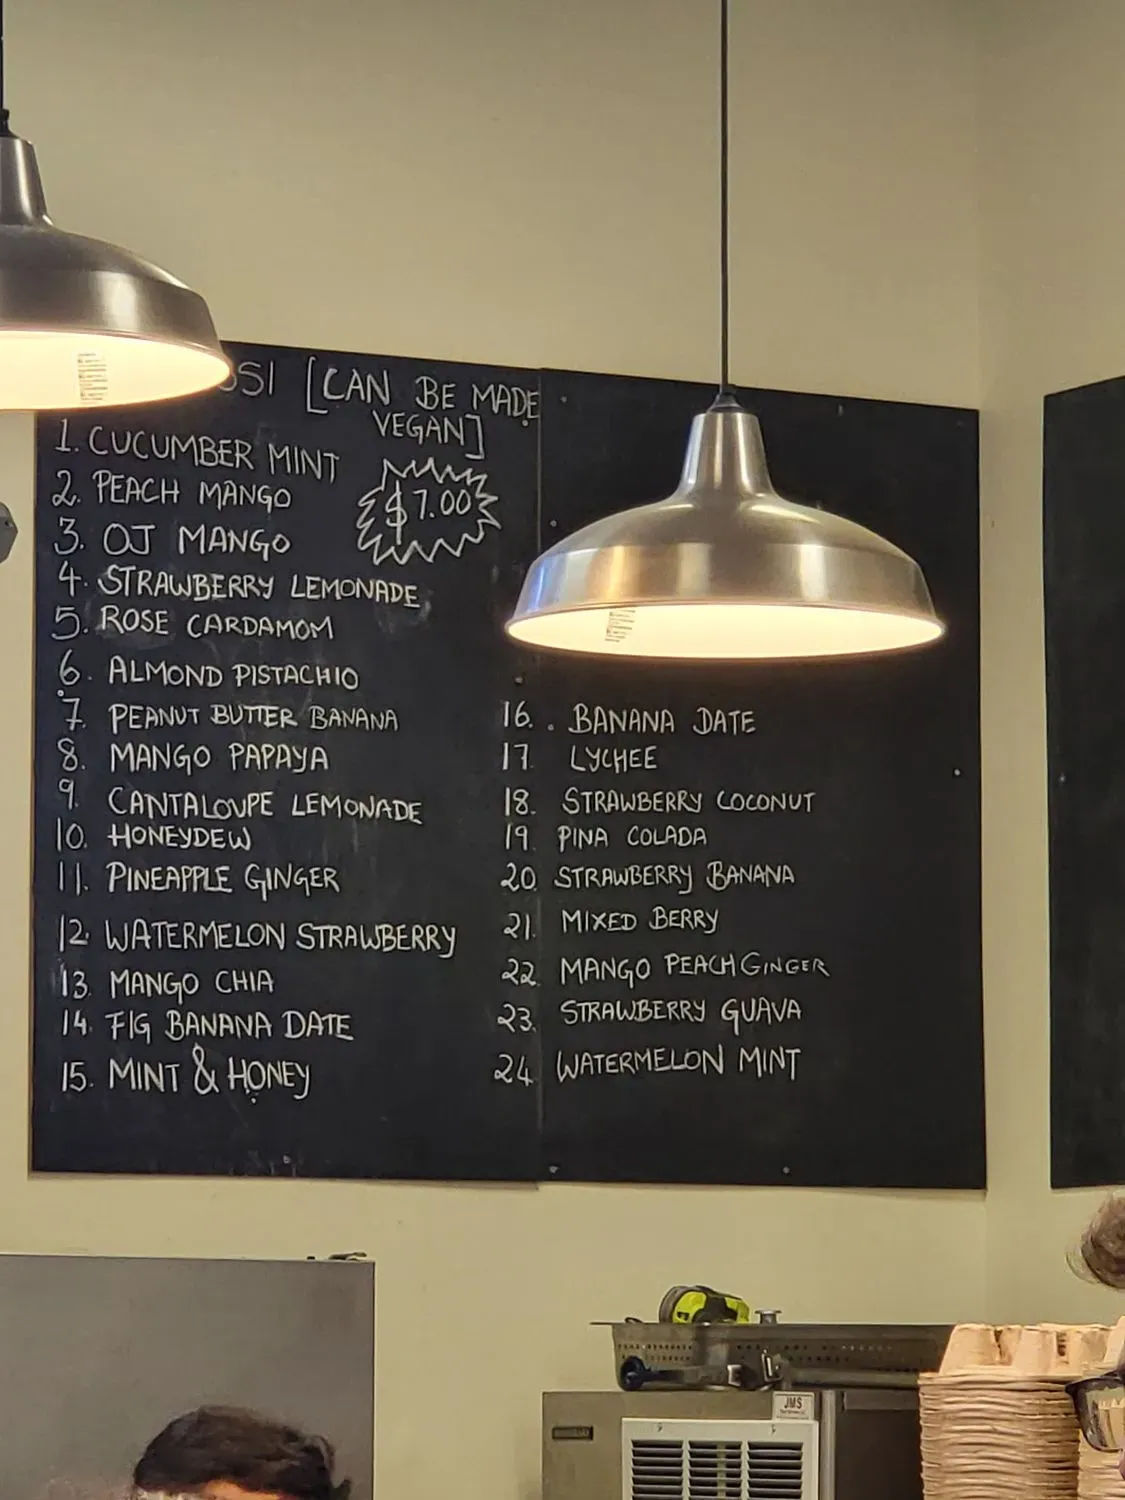 OSI [CAN BE MADE
VEGAN]
$7.00
1. CUCUMBER MINT
2. PEACH MANGO
3. OJ MANGO
4. STRAWBERRY LEMONADE
5. ROSE CARDAMOM
6. ALMOND PISTACHIO
7. PEANUT BUTTER BANANA
8. MANGO PAPAYA
9. CANTALOUPE LEMONADE
10. HONEYDEW
11. PINEAPPLE GINGER
12. WATERMELON STRAWBERRY
13. MANGO CHIA
14. FIG BANANA DATE
15. MINT & HONEY
16. . BANANA DATE
17. LYCHEE
18. STRAWBERRY COCONUT
19. PINA COLADA
20. STRAWBERRY BANANA
21. MIXED BERRY
22. MANGO PEACH GINGER
23. STRAWBERRY GUAVA
24. WATERMELON MINT
JMS